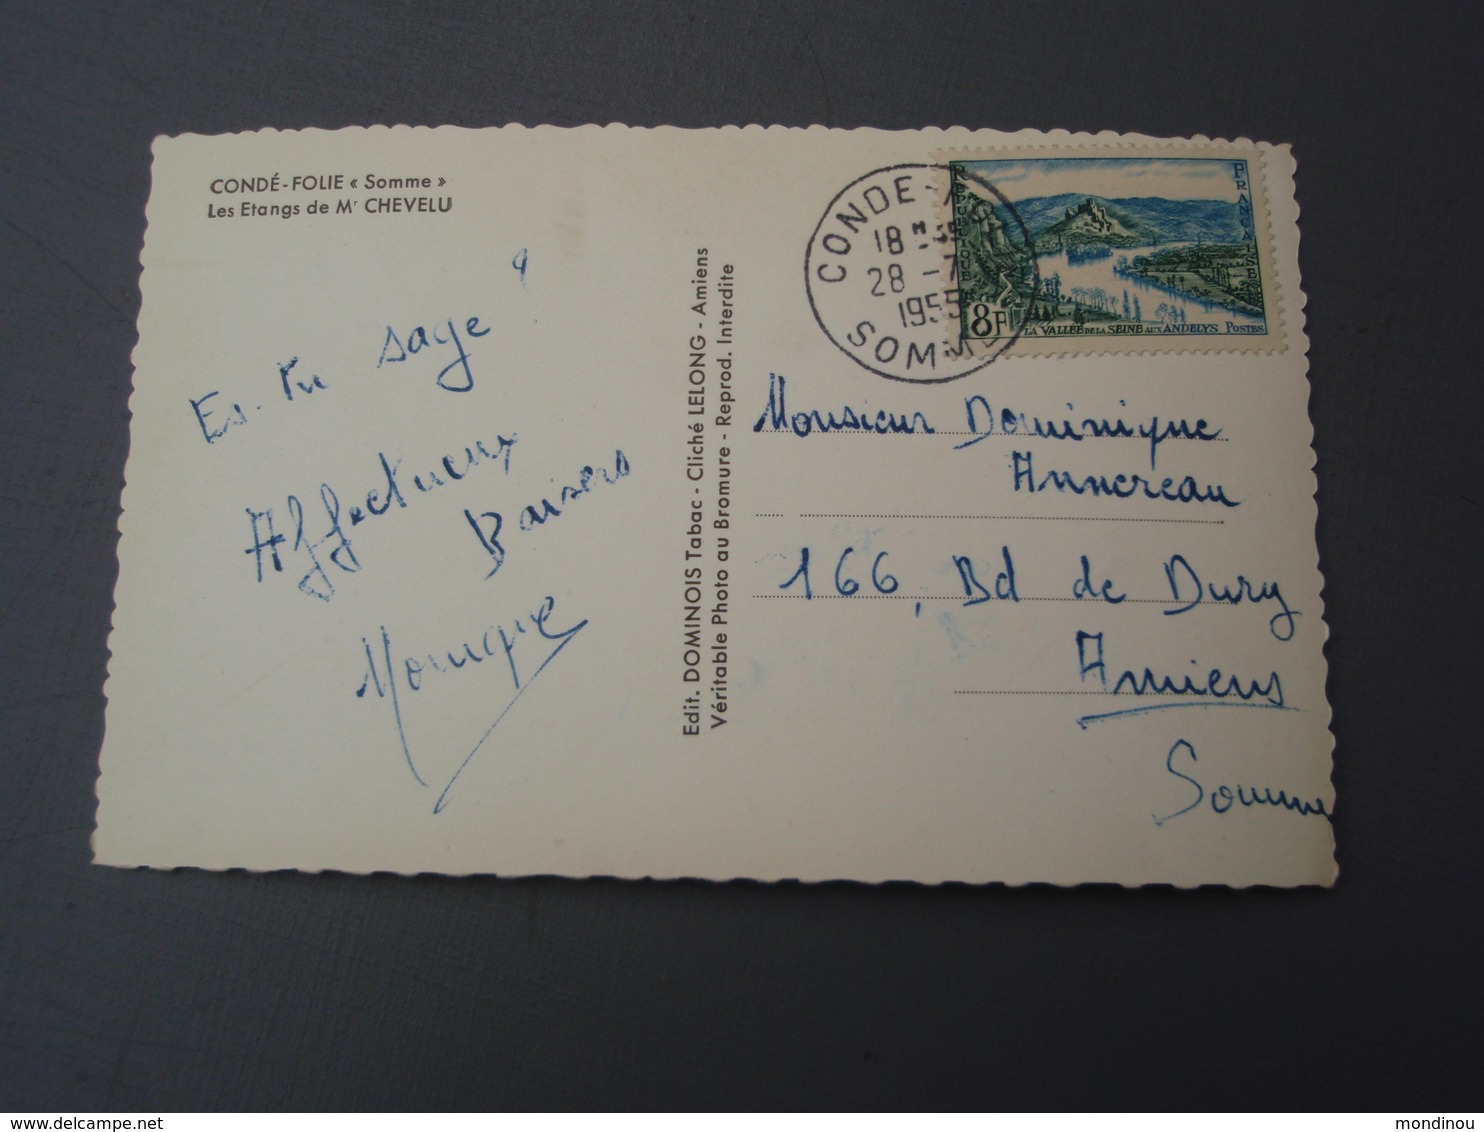 CONDÉ-FOLIE « Somme »
Les Etangs de Mr CHEVELU
Es-tu sage ?
Affectueux
Baisers
Monique
Edit. DOMINOIS Tabac - Cliché LELONG - Amiens
Véritable Photo au Bromure - Reprod. Interdite
CONDE-FO
18 H
28 - 7
1955
SOMME
REPUBLIQUE
FRANÇAISE
8F
LA VALLÉE DE LA SEINE AUX ANDELYS POSTES
Monsieur Dominique
Annereau
166, Bd de Dury
Amiens
Somme
www.delcampe.net
mondinou